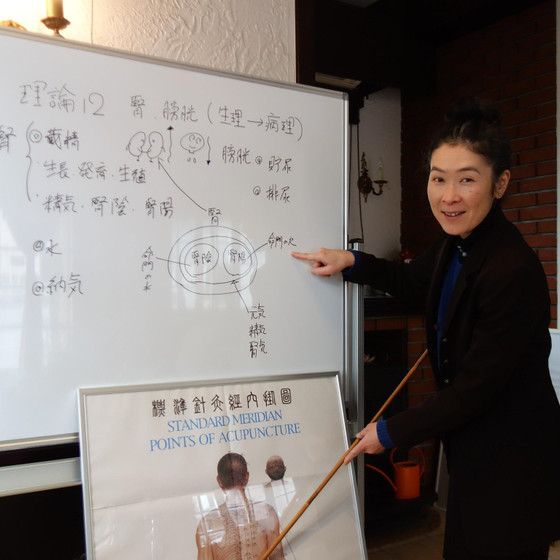 理論12 腎.膀胱(生理→病理)
腎
◎蔵精
生長.発育.生殖
・精気.腎陰.腎陽
◎水
◎納気
膀胱 ◎貯尿
◎排尿
腎
命門の水
腎陰
腎陽
命門の火
元気
精気
腎気
標準針灸經内掛圖
STANDARD MERIDIAN
POINTS OF ACUPUNCTURE